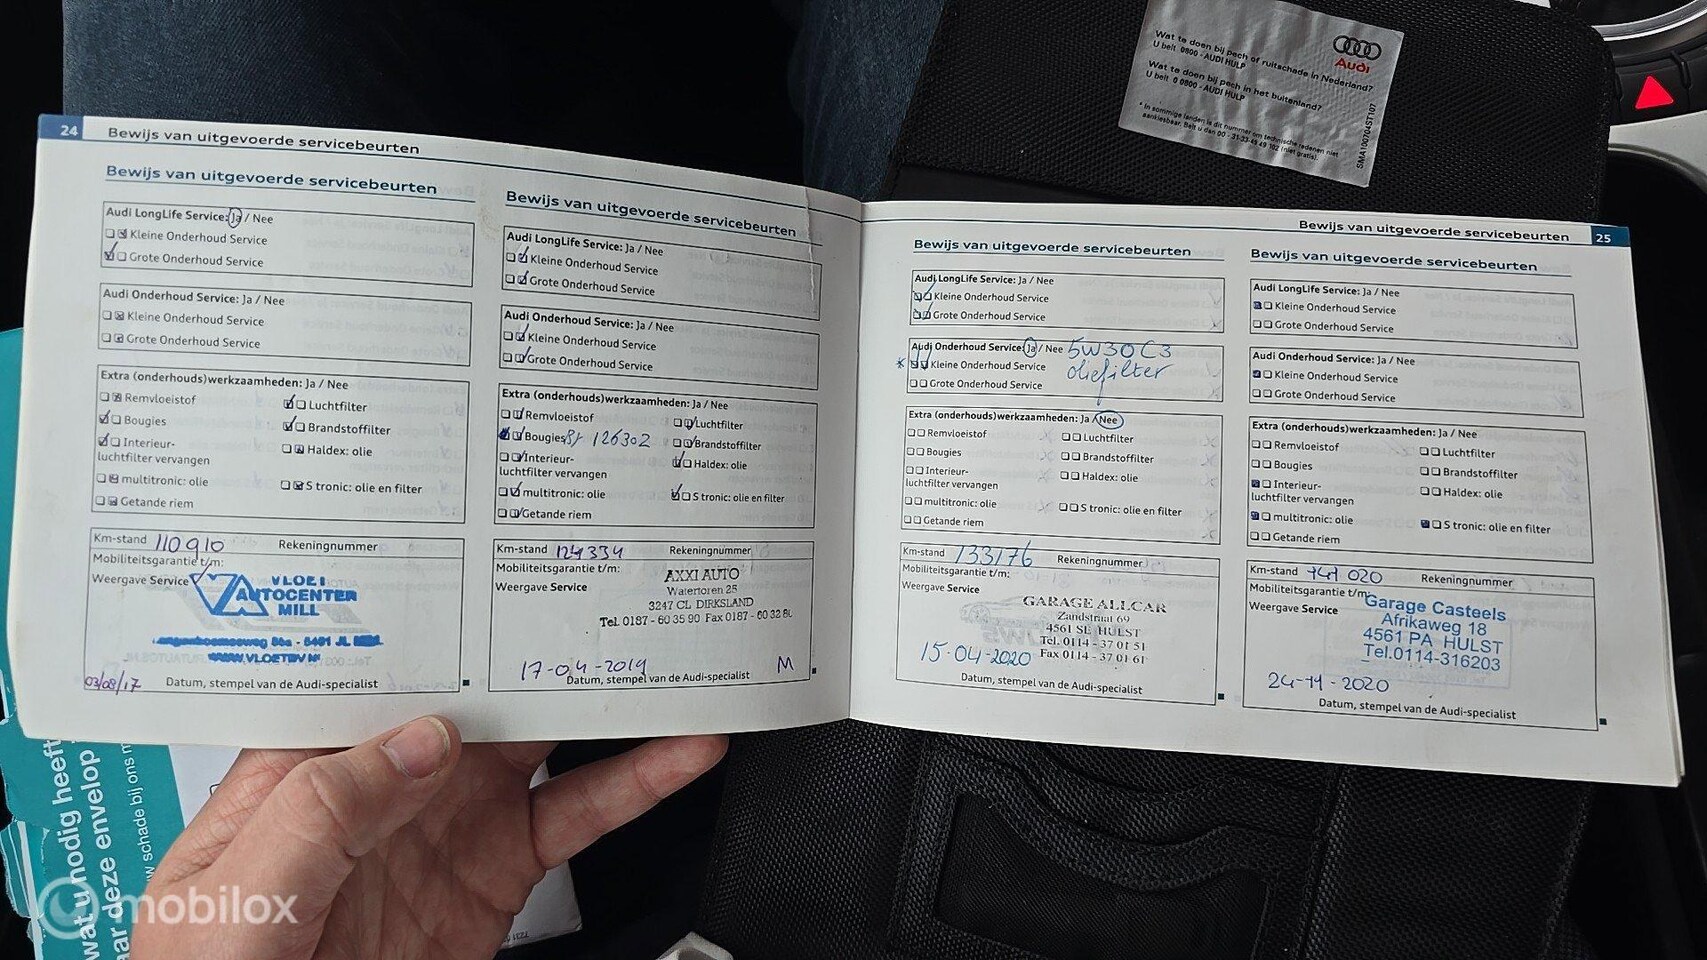 Wat te doen bij pech of ruitschade in Nederland?
U belt 0800 - AUDI HULP
Wat te doen bij pech in het buitenland?
U belt 0 0800 - AUDI HULP
* In sommige landen is dit nummer om technische redenen niet
aankiesbaar. Belt u dan 00 - 31-33-49 49 102 (niet gratis).
Audi
SMA100704ST107
24 Bewijs van uitgevoerde servicebeurten
Bewijs van uitgevoerde servicebeurten
Audi LongLife Service: Ja / Nee
Kleine Onderhoud Service
Grote Onderhoud Service
Audi Onderhoud Service: Ja / Nee
Kleine Onderhoud Service
Grote Onderhoud Service
Extra (onderhouds)werkzaamheden: Ja / Nee
Remvloeistof Luchtfilter
Bougies Brandstoffilter
Interieur- Haldex: olie
luchtfilter vervangen
multitronic: olie S tronic: olie en filter
Getande riem
Km-stand 110910 Rekeningnummer
Mobiliteitsgarantie t/m:
Weergave Service
VLOET
AUTOCENTER
MILL
03/08/17 Datum, stempel van de Audi-specialist
Bewijs van uitgevoerde servicebeurten
Audi LongLife Service: Ja / Nee
Kleine Onderhoud Service
Grote Onderhoud Service
Audi Onderhoud Service: Ja / Nee
Kleine Onderhoud Service
Grote Onderhoud Service
Extra (onderhouds)werkzaamheden: Ja / Nee
Remvloeistof Luchtfilter
Bougies 126302 Brandstoffilter
Interieur- Haldex: olie
luchtfilter vervangen
multitronic: olie S tronic: olie en filter
Getande riem
Km-stand 124334 Rekeningnummer
Mobiliteitsgarantie t/m:
Weergave Service
AXXI AUTO
Watertoren 25
3247 CL DIRKSLAND
Tel. 0187 - 60 35 90 Fax 0187 - 60 32 80
17-04-2019 M
Datum, stempel van de Audi-specialist
Bewijs van uitgevoerde servicebeurten 25
Bewijs van uitgevoerde servicebeurten
Audi LongLife Service: Ja / Nee
Kleine Onderhoud Service
Grote Onderhoud Service
Audi Onderhoud Service: Ja / Nee 5W30 C3
* Kleine Onderhoud Service oliefilter
Grote Onderhoud Service
Extra (onderhouds)werkzaamheden: Ja / Nee
Remvloeistof Luchtfilter
Bougies Brandstoffilter
Interieur- Haldex: olie
luchtfilter vervangen
multitronic: olie S tronic: olie en filter
Getande riem
Km-stand 133176 Rekeningnummer
Mobiliteitsgarantie t/m:
Weergave Service
GARAGE ALLCAR
Zandstraat 69
4561 SE HULST
Tel. 0114 - 37 01 51
Fax 0114 - 37 01 61
15-04-2020
Datum, stempel van de Audi-specialist
Bewijs van uitgevoerde servicebeurten
Audi LongLife Service: Ja / Nee
Kleine Onderhoud Service
Grote Onderhoud Service
Audi Onderhoud Service: Ja / Nee
Kleine Onderhoud Service
Grote Onderhoud Service
Extra (onderhouds)werkzaamheden: Ja / Nee
Remvloeistof Luchtfilter
Bougies Brandstoffilter
Interieur- Haldex: olie
luchtfilter vervangen
multitronic: olie S tronic: olie en filter
Getande riem
Km-stand 141 020 Rekeningnummer
Mobiliteitsgarantie t/m:
Weergave Service
Garage Casteels
Afrikaweg 18
4561 PA HULST
Tel.0114-316203
24-11-2020
Datum, stempel van de Audi-specialist
wat u nodig heeft
aar deze envelop
w schade bij ons m
mobilox